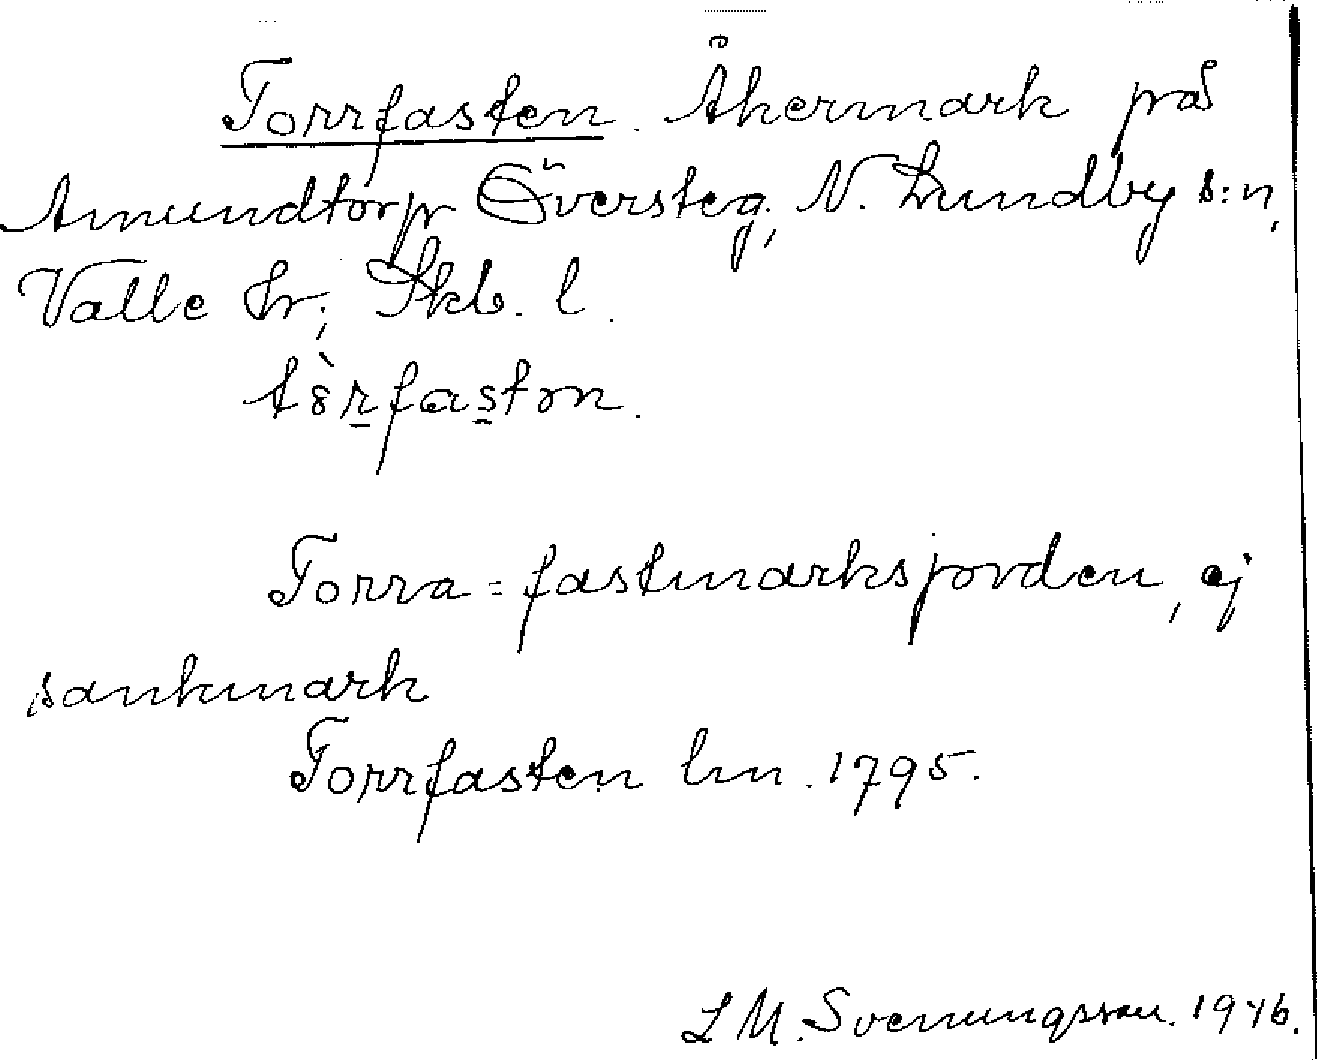 Torrfasten. Åkermark på
Amundtorp Översteg, N. Lundby s:n,
Valle hr; Skb. l.
tòrfastən.
Torra = fastmarksjorden, ej
sankmark
Torrfasten lm. 1795.
L M. Svenungsson. 1946.